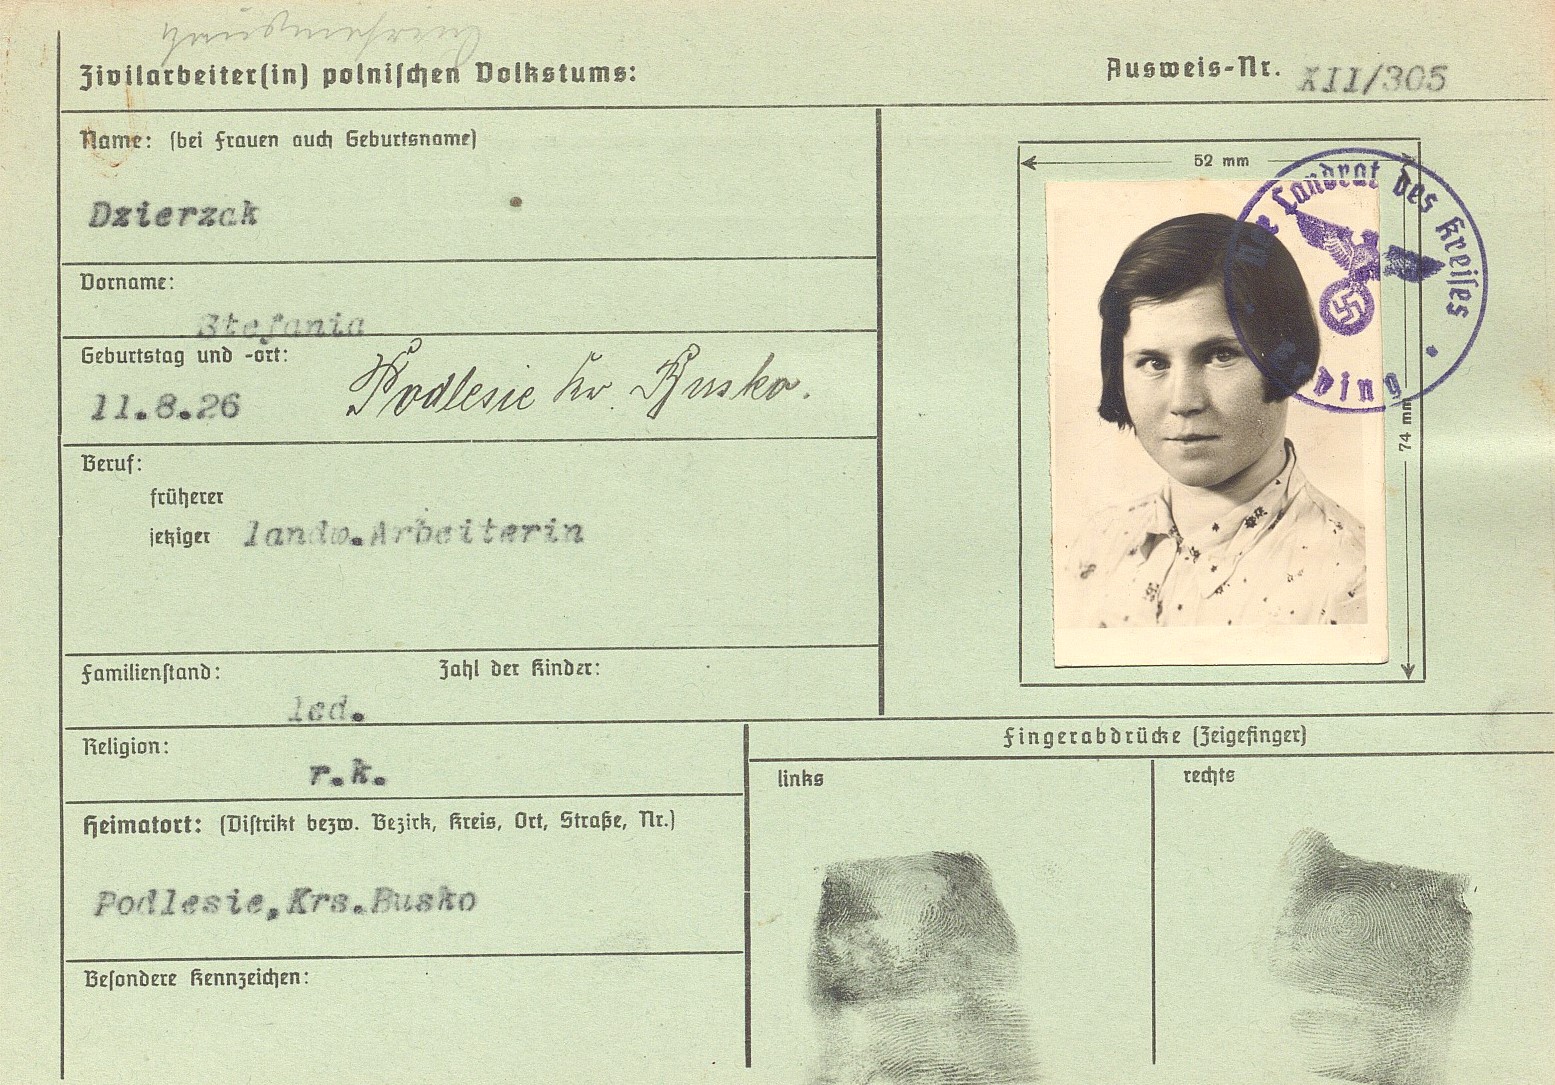 Zivilarbeiter(in) polnischen Volkstums:
Ausweis-Nr. XII/305
Name: (bei Frauen auch Geburtsname)
Dzierzak
Vorname:
Stefania
Geburtstag und -ort:
11.8.26 Podlesie Kr. Busko.
Beruf:
früherer
jetziger landw.Arbeiterin
Familienstand: Zahl der Kinder:
led.
Religion:
r.k.
Heimatort: (Distrikt bezw. Bezirk, Kreis, Ort, Straße, Nr.)
Podlesie,Krs.Busko
Besondere Kennzeichen:
52 mm
74 mm
Der Landrat des Kreises
Fingerabdrücke (Zeigefinger)
links
rechts